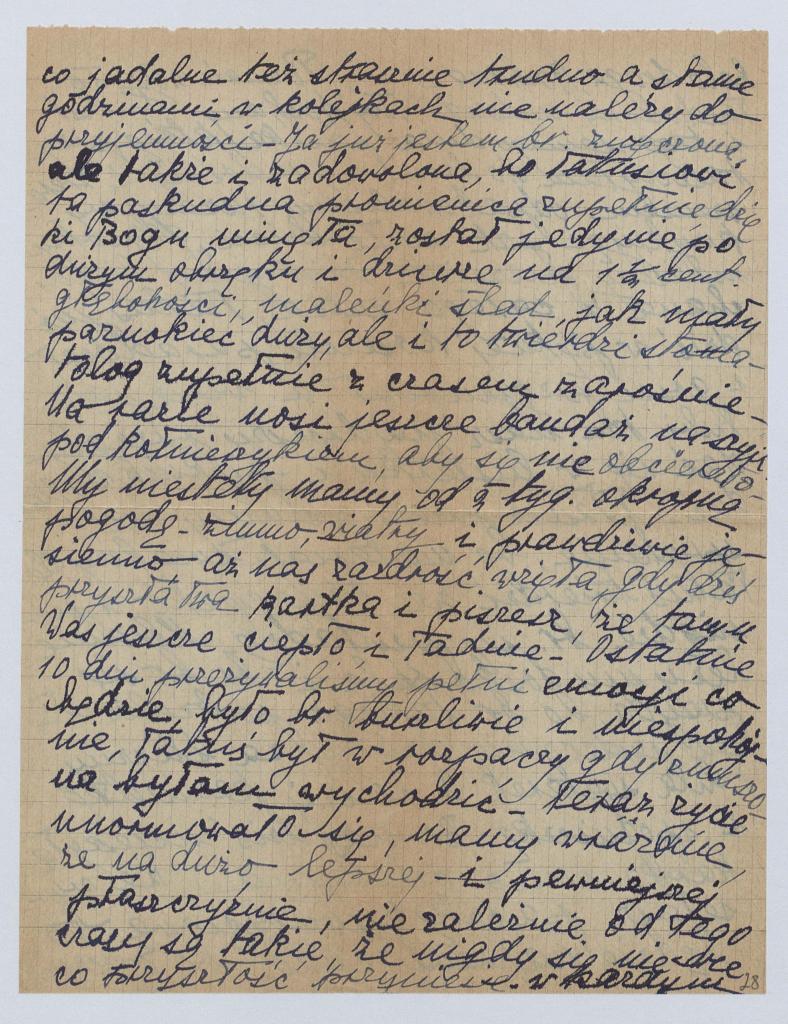 co jadalne też strasznie trudno a stanie
godzinami w kolejkach nie należy do
przyjemności - Ja już jestem br. zmęczona,
ale także i zadowolona, bo Tatusiowi
ta paskudna promienica zupełnie, dzię
ki Bogu minęła, został jedynie po
dużym obrzęku i dziurze na 1 1/2 cent.
głębokości, maleńki ślad, jak mały
paznokieć duży, ale i to twierdzi stoma-
tolog zupełnie z czasem zarośnie -
Na razie nosi jeszcze bandaż na szyi
pod kołnierzykiem, aby się nie obcierało -
My niestety mamy od 2 tyg. okropną
pogodę - zimno, wiatry i prawdziwie je-
siennie aż nas zazdrość wzięła, gdy dziś
przyszła Twa kartka i piszesz, że tam u
Was jeszcze ciepło i ładnie - Ostatnie
10 dni przeżywaliśmy pełni emocji co
będzie, było br. burzliwie i niespokoj-
nie, Tatuś był w rozpaczy gdy zmuszo-
na byłam wychodzić - Teraz życie
unormowało się, mamy wrażenie,
że na dużo lepszej - i pewniejszej
płaszczyźnie, niezależnie od tego
czasy są takie, że nigdy się nie wie
co przyszłość przyniesie - w każdym
28